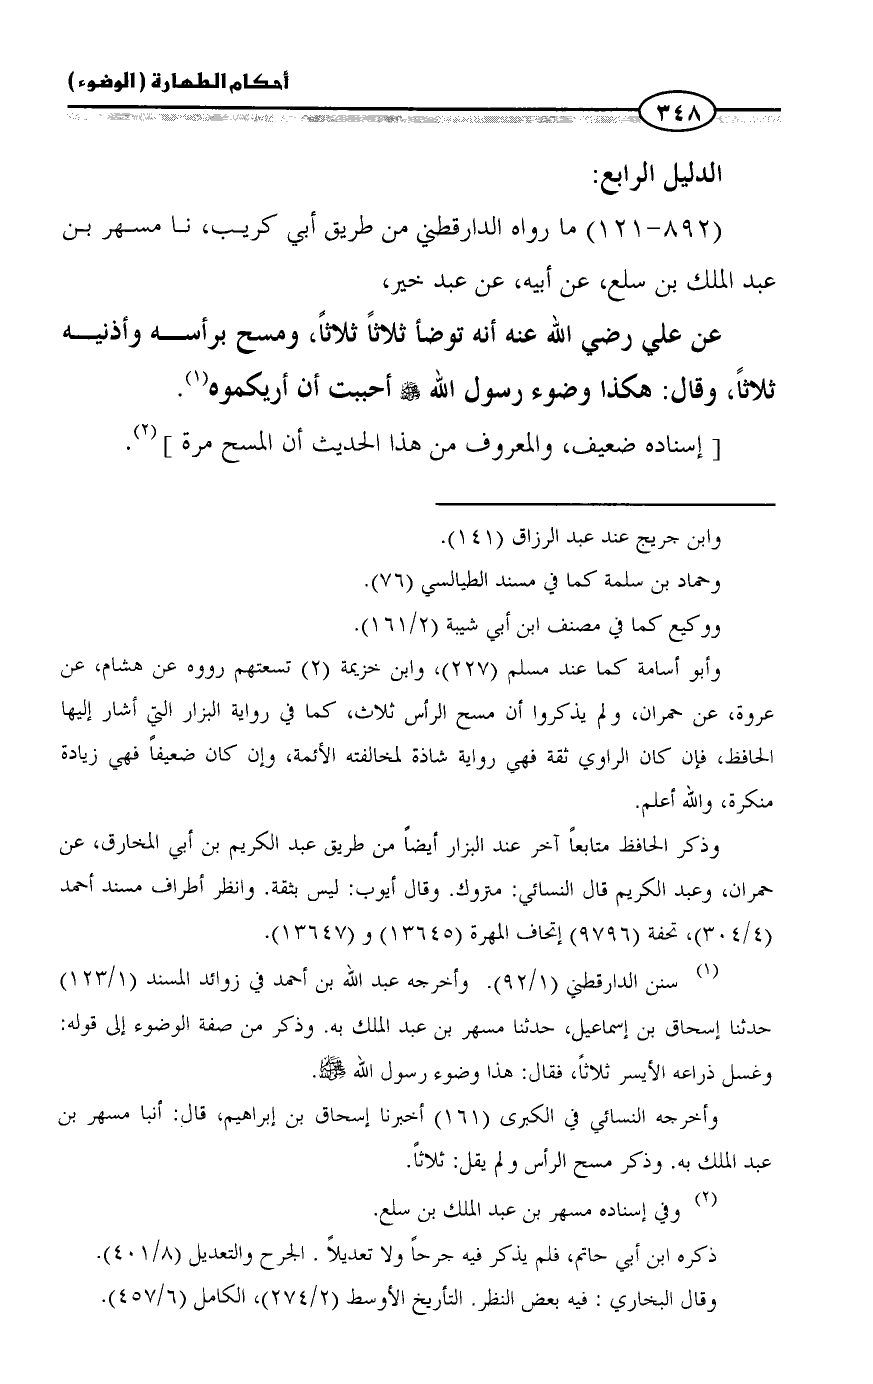 أحكام الطهارة (الوضوء)
٣٤٨
الدليل الرابع:
(٨٩٢-١٢١) ما رواه الدارقطني من طريق أبي كريب، نا مسهر بن
عبد الملك بن سلع، عن أبيه، عن عبد خير،
عن علي رضي الله عنه أنه توضأ ثلاثاً ثلاثاً، ومسح برأسه وأذنيه
ثلاثاً، وقال: هكذا وضوء رسول الله ﷺ أحببت أن أريكموه(١).
[ إسناده ضعيف، والمعروف من هذا الحديث أن المسح مرة ](٢).
وابن جريج عند عبد الرزاق (١٤١).
وحماد بن سلمة كما في مسند الطيالسي (٧٦).
ووكيع كما في مصنف ابن أبي شيبة (١٦١/٢).
وأبو أسامة كما عند مسلم (٢٢٧)، وابن خزيمة (٢) تسعتهم رووه عن هشام، عن
عروة، عن حمران، ولم يذكروا أن مسح الرأس ثلاث، كما في رواية البزار التي أشار إليها
الحافظ، فإن كان الراوي ثقة فهي رواية شاذة لمخالفته الأئمة، وإن كان ضعيفاً فهي زيادة
منكرة، والله أعلم.
وذكر الحافظ متابعاً آخر عند البزار أيضاً من طريق عبد الكريم بن أبي المخارق، عن
حمران، وعبد الكريم قال النسائي: متروك. وقال أيوب: ليس بثقة. وانظر أطراف مسند أحمد
(٣٠٤/٤)، تحفة (٩٧٩٦) إتحاف المهرة (١٣٦٤٥) و (١٣٦٤٧).
(١) سنن الدارقطني (٩٢/١). وأخرجه عبد الله بن أحمد في زوائد المسند (١٢٣/١)
حدثنا إسحاق بن إسماعيل، حدثنا مسهر بن عبد الملك به. وذكر من صفة الوضوء إلى قوله:
وغسل ذراعه الأيسر ثلاثاً، فقال: هذا وضوء رسول الله ﷺ.
وأخرجه النسائي في الكبرى (١٦١) أخبرنا إسحاق بن إبراهيم، قال: أنبا مسهر بن
عبد الملك به. وذكر مسح الرأس ولم يقل: ثلاثاً.
(٢) وفي إسناده مسهر بن عبد الملك بن سلع.
ذكره ابن أبي حاتم، فلم يذكر فيه جرحاً ولا تعديلاً . الجرح والتعديل (٤٠١/٨).
وقال البخاري : فيه بعض النظر. التأريخ الأوسط (٢٧٤/٢)، الكامل (٤٥٧/٦).